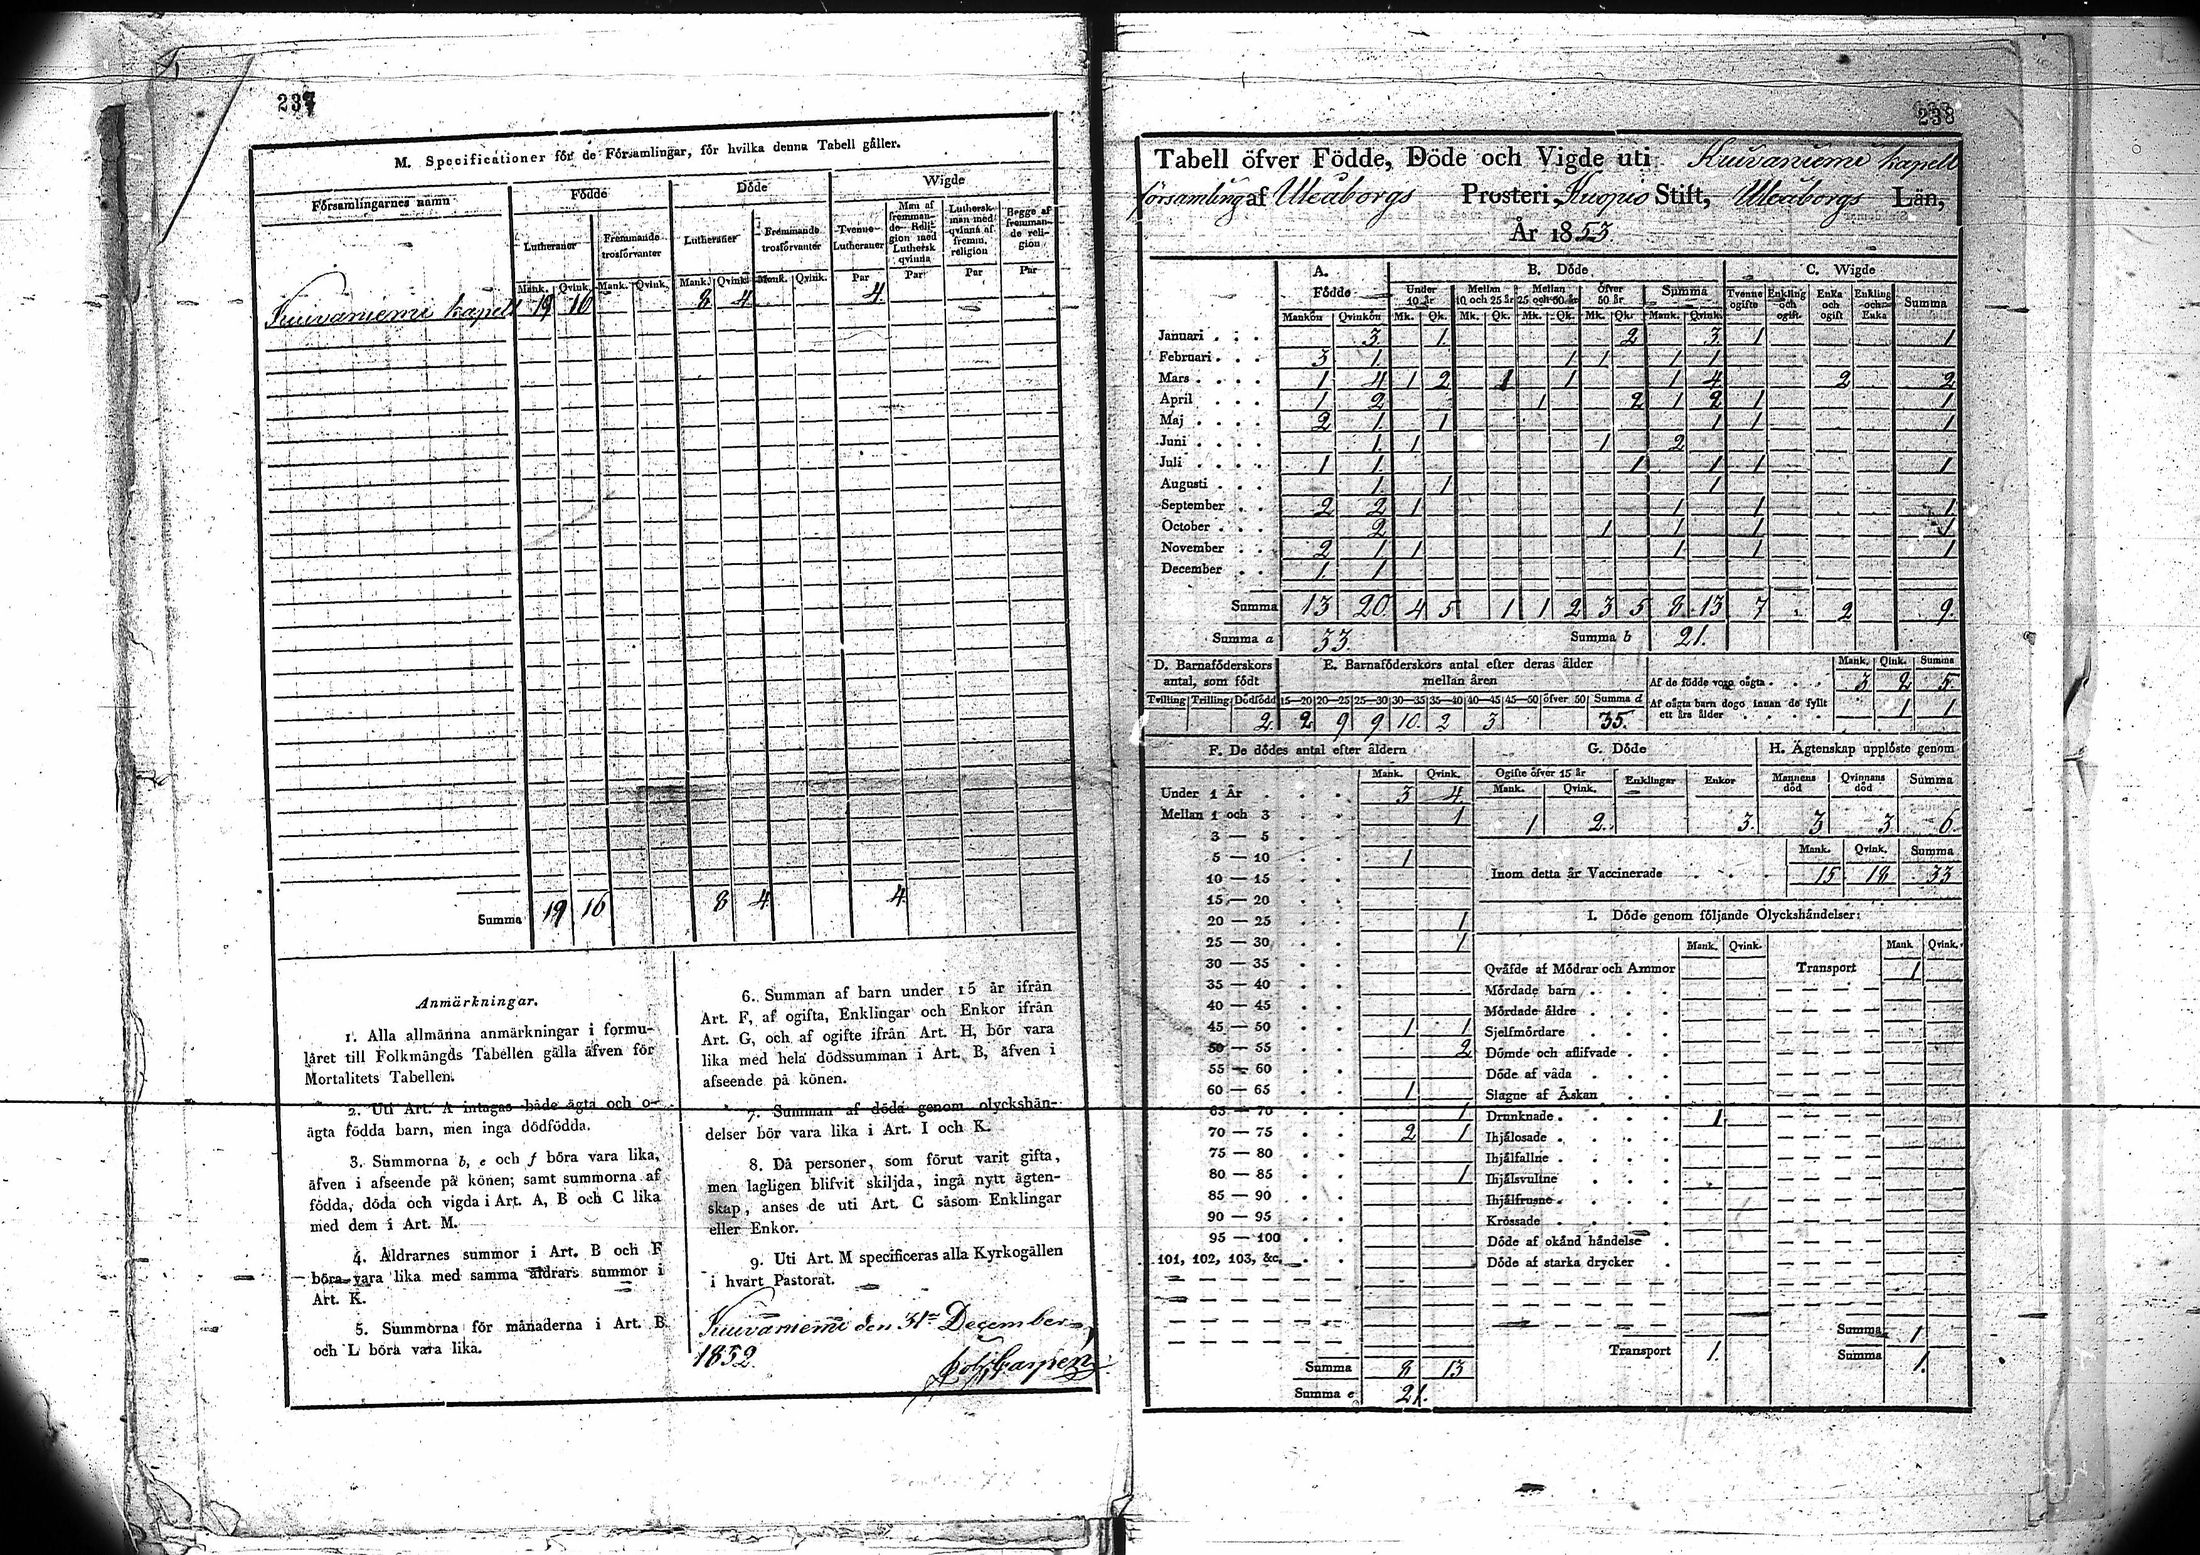 237
M. Specificationer för de Församlingar, för hvilka denna Tabell gäller.
Församlingarnes namn
Födde
Döde
Wigde
Lutheraner
Fremmande trosförvanter
Lutheraner
Fremmande trosförvanter
Tvenne Lutheraner
Man af fremmande Religion med Luthersk qvinna
Luthersk man med qvinna af fremm. religion
Begge af fremmande religion
Mank. Qvink. Mank. Qvink. Mank. Qvink. Mank. Qvink. Par Par Par Par
Kuivaniemi kapell 19 16 8 4 4
Summa 19 16 8 4 4
Anmärkningar.
1. Alla allmänna anmärkningar i formu-
läret till Folkmängds Tabellen gälla äfven för
Mortalitets Tabellen.
2. Uti Art. A intagas både ägta och o-
ägta födda barn, men inga dödfödda.
3. Summorna b, e och f böra vara lika,
äfven i afseende på könen; samt summorna af
födda, döda och vigda i Art. A, B och C lika
med dem i Art. M.
4. Åldrarnes summor i Art. B och F
böra vara lika med samma åldrars summor i
Art. K.
5. Summorna för månaderna i Art. B
och L böra vara lika.
6. Summan af barn under 15 år ifrån
Art. F, af ogifta, Enklingar och Enkor ifrån
Art. G, och af ogifte ifrån Art. H, bör vara
lika med hela dödssumman i Art. B, äfven i
afseende på könen.
7. Summan af döda genom olyckshän-
delser bör vara lika i Art. I och K.
8. Då personer, som förut varit gifta,
men lagligen blifvit skiljda, ingå nytt ägten-
skap, anses de uti Art. C såsom Enklingar
eller Enkor.
9. Uti Art. M specificeras alla Kyrkogällen
i hvart Pastorat.
Kuivaniemi den 31 December
1852.
238
Tabell öfver Födde, Döde och Vigde uti Kuivaniemi kapell
församling af Uleåborgs Prosteri, Kuopio Stift, Uleåborgs Län,
År 1853
A. Födde
B. Döde
C. Wigde
Under 10 år
Mellan 10 och 25 år
Mellan 25 och 50 år
Öfver 50 år
Summa
Tvenne ogifte
Enkling och ogift
Enka och ogift
Enkling och Enka
Summa
Mankön Qvinkön Mk. Qk. Mk. Qk. Mk. Qk. Mk. Qk. Mank. Qvink.
Januari 3 1 2 3 1 1
Februari 3 1 1 1 1 1
Mars 1 4 1 2 1 1 1 4 2 2
April 1 2 1 2 1 2 1 1
Maj 2 1 1 1 1 1
Juni 1 1 1 2
Juli 1 1 1 1 1 1
Augusti 1 1 1
September 2 2 1 1 1 1
October 2 1 1 1 1
November 2 1 1 1 1 1
December 1 1
Summa 13 20 4 5 1 1 2 3 5 8 13 7 2 9.
Summa a 33. Summa b 21.
D. Barnaföderskors antal, som födt
Tvilling Trilling Dödfödd
2
E. Barnaföderskors antal efter deras ålder mellan åren
15—20 20—25 25—30 30—35 35—40 40—45 45—50 öfver 50 Summa d
2 9 9 10 2 3 35.
Mank. Qink. Summa
Af de födde voro oägta 3 2 5
Af oägta barn dogo innan de fyllt ett års ålder 1 1
F. De dödes antal efter åldern
Mank. Qvink.
Under 1 År 3 4
Mellan 1 och 3 1
3 — 5
5 — 10 1
10 — 15
15 — 20
20 — 25 1
25 — 30 1
30 — 35
35 — 40
40 — 45
45 — 50 1 1
50 — 55 2
55 — 60
60 — 65 1
65 — 70 1
70 — 75 2 1
75 — 80
80 — 85 1
85 — 90
90 — 95
95 — 100
101, 102, 103, &c.
Summa 8 13
Summa e 21.
G. Döde
Ogifte öfver 15 år
Mank. Qvink.
Enklingar
Enkor
1 2 3
H. Ägtenskap upplöste genom
Mannens död
Qvinnans död
Summa
3 3 6
Mank. Qvink. Summa
Inom detta år Vaccinerade 15 18 33
I. Döde genom följande Olyckshändelser:
Mank. Qvink. Mank Qvink.
Qväfde af Mödrar och Ammor
Transport 1
Mördade barn
Mördade äldre
Sjelfmördare
Dömde och aflifvade
Döde af våda
Slagne af Åskan
Drunknade 1
Ihjälosade
Ihjälfallne
Ihjälsvultne
Ihjälfrusne
Krossade
Döde af okänd händelse
Döde af starka drycker
Summa 1
Transport 1.
Summa 1.